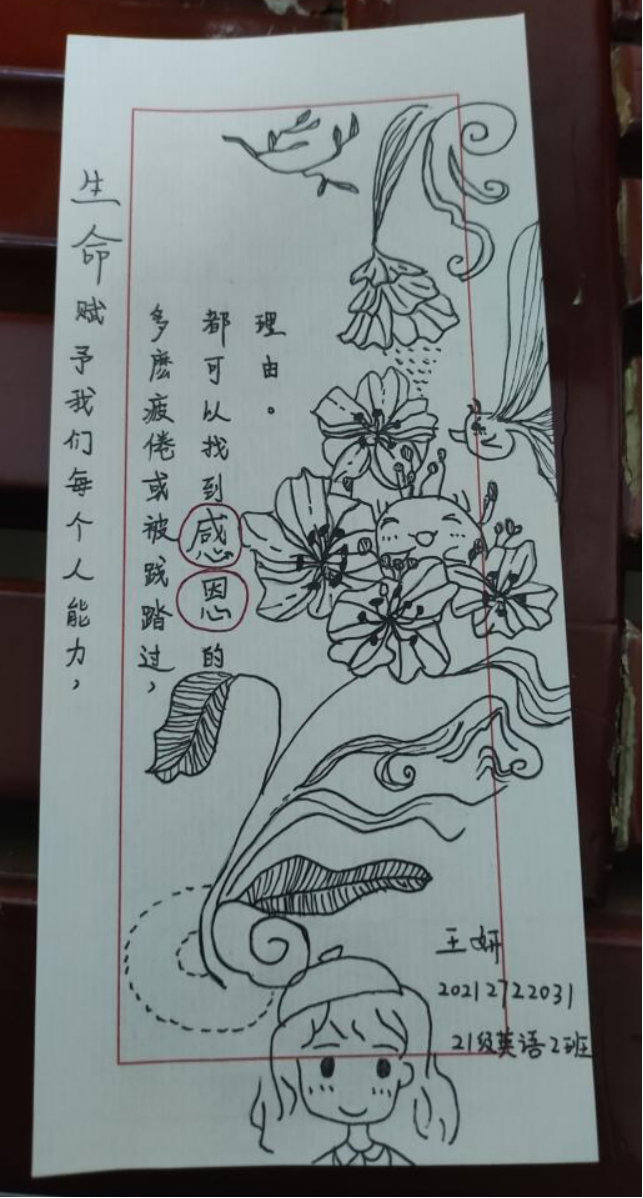 生命赋予我们每个人能力,
多麽疲倦或被践踏过,
都可以找到感恩的
理由。
王妍
20212722031
21级英语2班